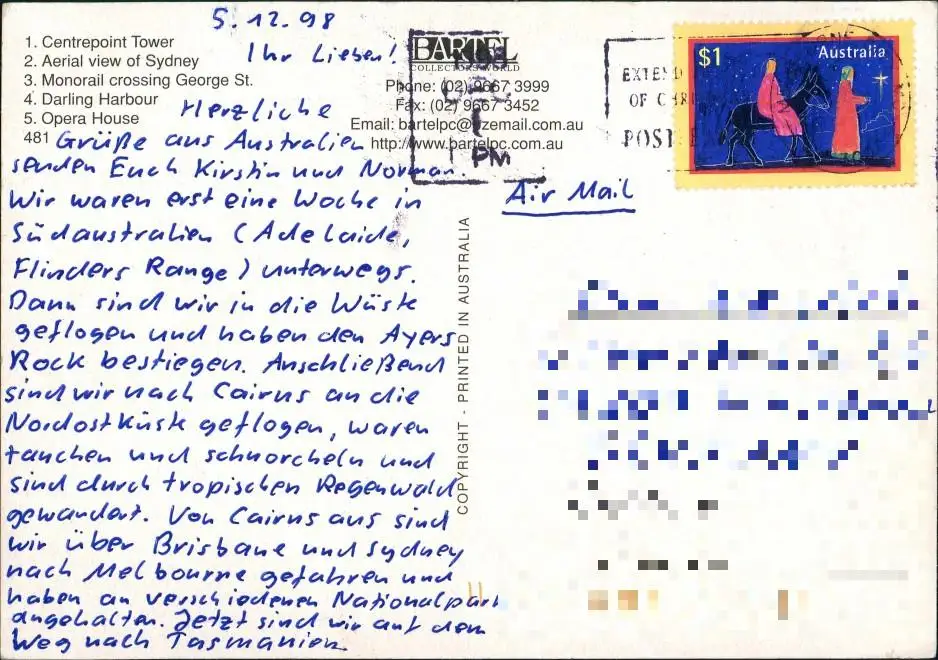 5.12.98
1. Centrepoint Tower
2. Aerial view of Sydney
3. Monorail crossing George St.
4. Darling Harbour
5. Opera House
481
BARTEL
COLLECTORS WORLD
Phone: (02) 9667 3999
Fax: (02) 9667 3452
Email: bartelpc@ozemail.com.au
http://www.bartelpc.com.au
Ihr Lieben!
Herzliche
Grüße aus Australien
senden Euch Kirstin und Norman.
Wir waren erst eine Woche in
Südaustralien (Adelaide,
Flinders Range) unterwegs.
Dann sind wir in die Wüste
geflogen und haben den Ayers
Rock bestiegen. Anschließend
sind wir nach Cairns an die
Nordostküste geflogen, waren
tauchen und schnorcheln und
sind durch tropischen Regenwald
gewandert. Von Cairns aus sind
wir über Brisbane und Sydney
nach Melbourne gefahren und
haben an verschiedenen Nationalpark
angehalten. Jetzt sind wir auf dem
Weg nach Tasmanien
COPYRIGHT - PRINTED IN AUSTRALIA
PM
EXTEND
OF
POST
$1
Australia
Air Mail